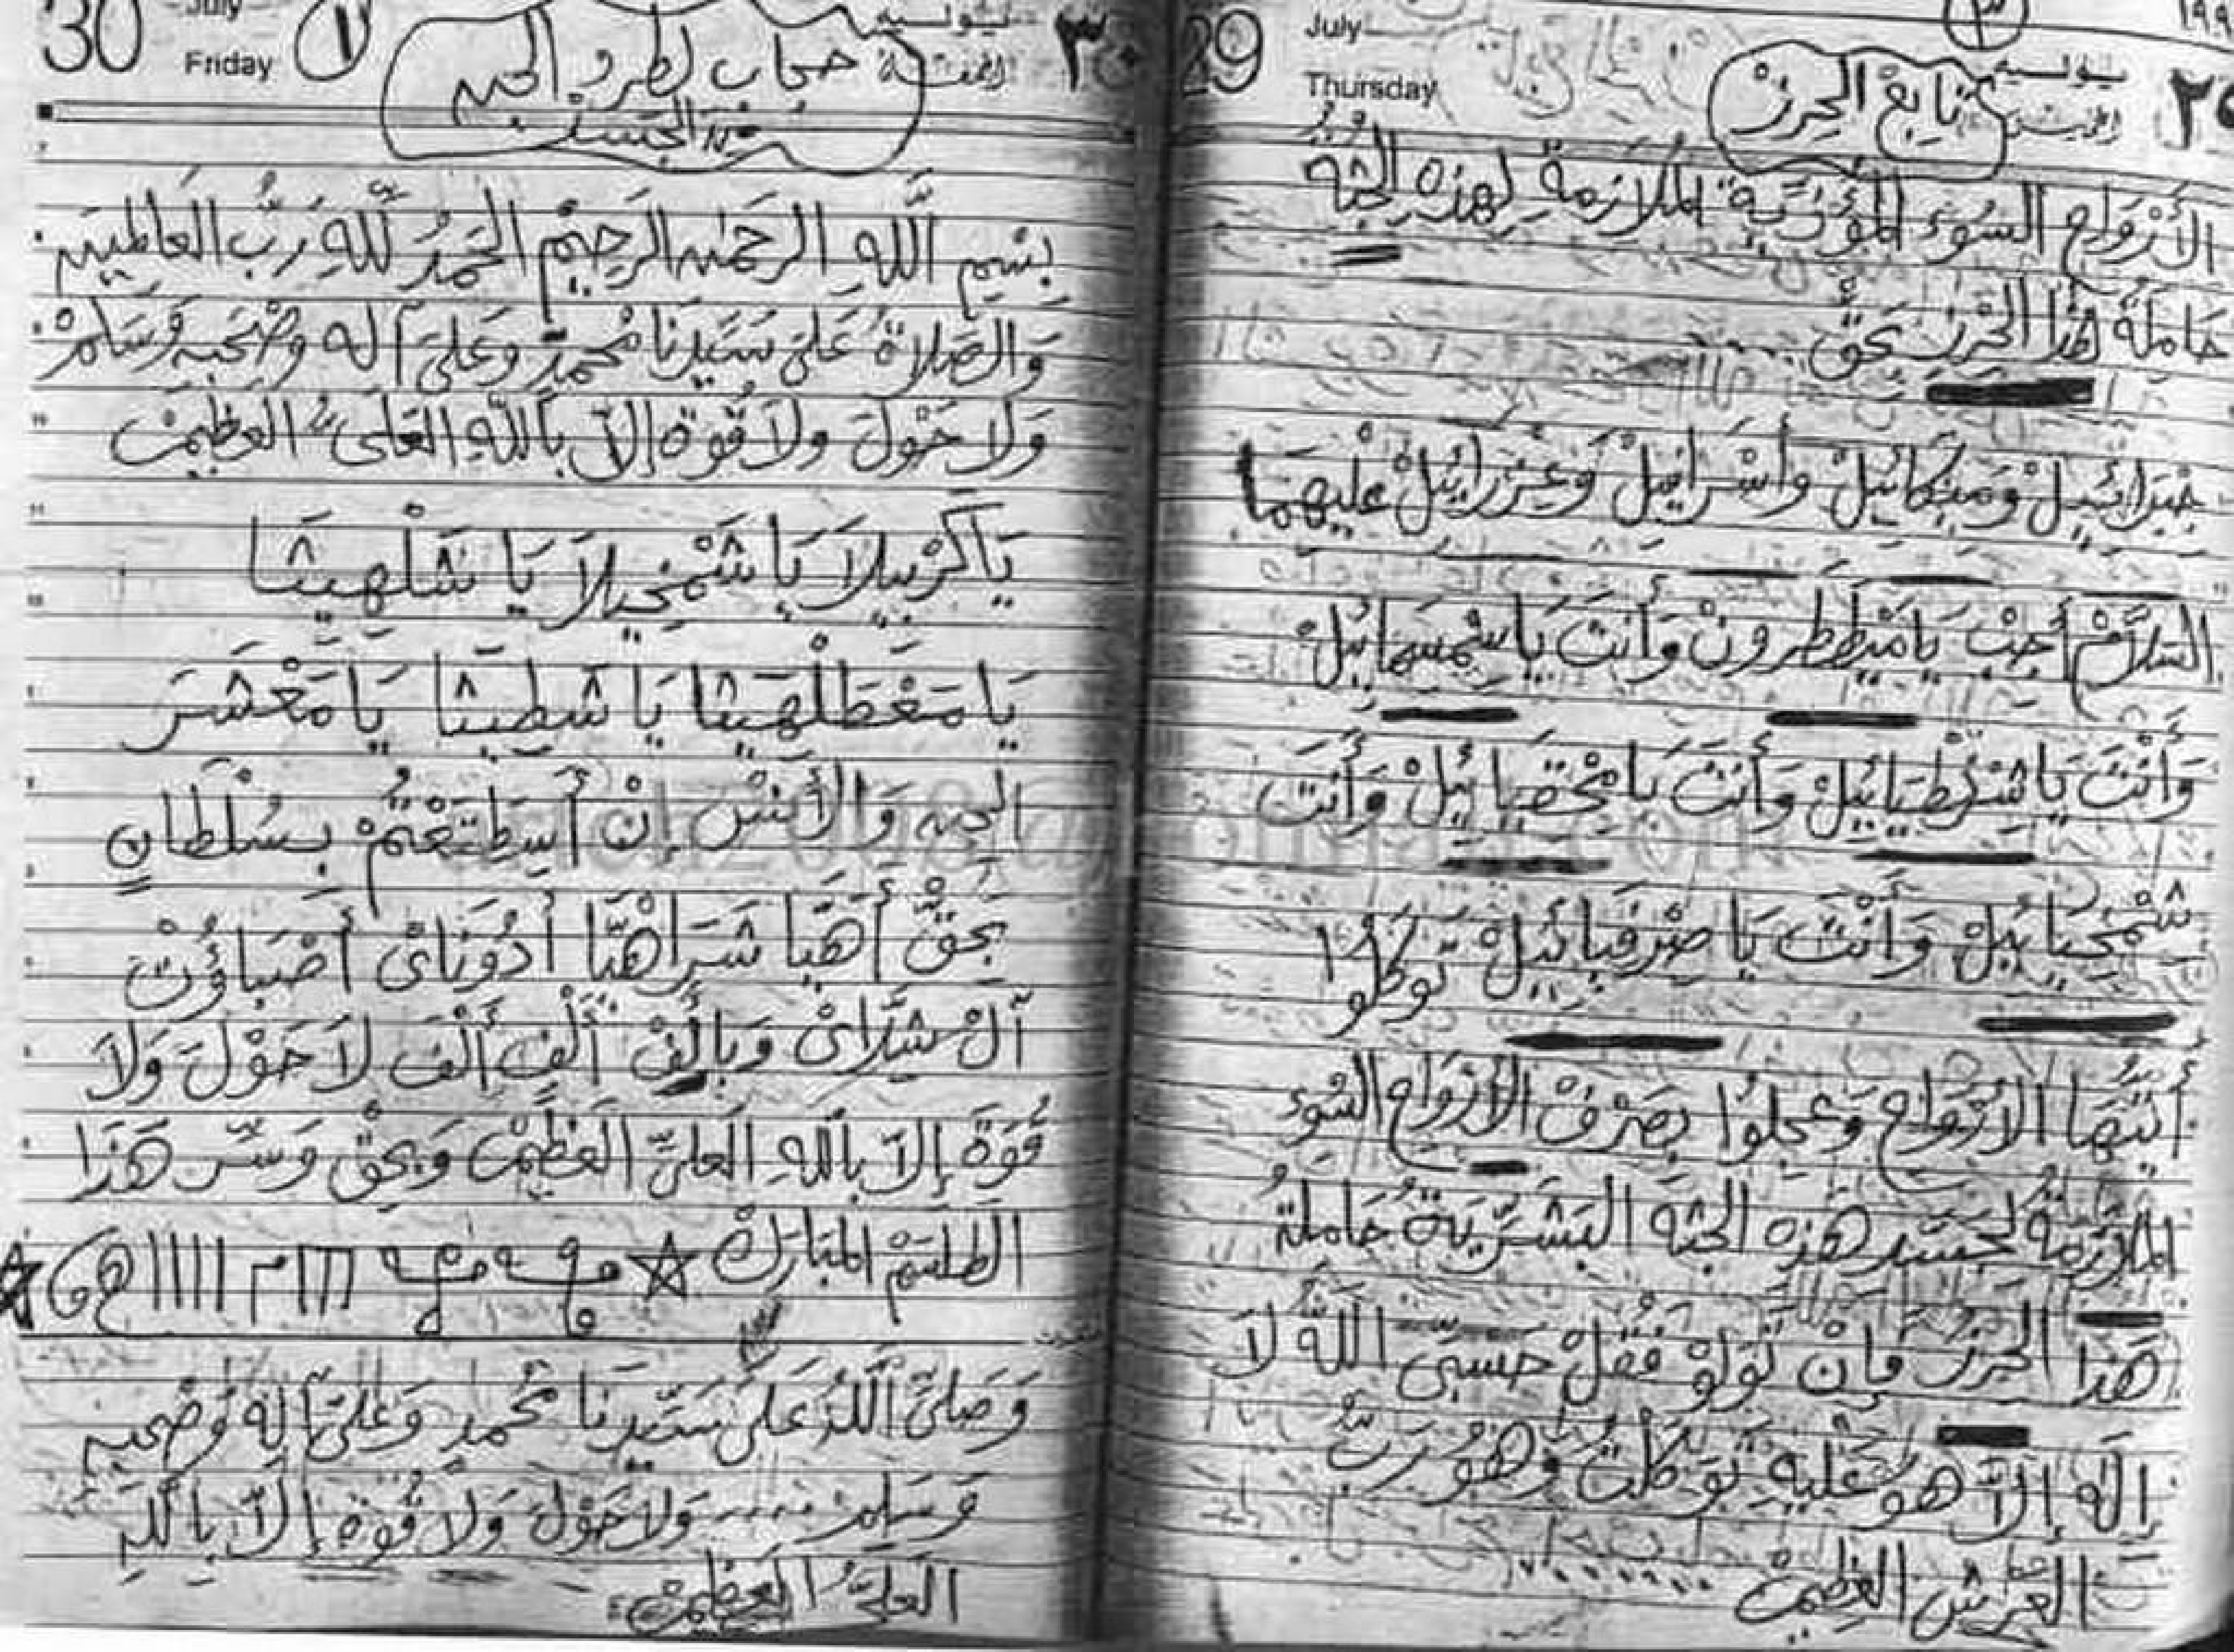 29 July Thursday
٣
١٩٩
يوليه
الخميس ٢٩
تابع الحرز
الأرواح السوء المؤذية الملازمة لهذه الجثه
حاملة هذا الحرز بحق
جبرائيل وميكائيل وأسرافيل وعزرائيل عليهما
السلام أجب يا ميططرون وأنت يا سمسمائيل
وأنت يا شرطيائيل وأنت يا
وأنت
وأنت يا صرفيائيل توكلوا
أيتها الأرواح وعجلوا بصرف الأرواح السوء
الملازمة لجسد هذه الجثه البشرية حاملة
هذا الحرز فإن تولو فقل حسبي الله لا
إله إلا هو عليه توكلت وهو رب
العرش العظيم
30 July Friday
١
يوليه
الجمعة ٣٠
حجاب لطرد الجن
من الجسد
بسم الله الرحمن الرحيم الحمد لله رب العالمين
والصلاة على سيدنا محمد وعلى آله وصحبه وسلم
ولا حول ولا قوة إلا بالله العلي العظيم
يا كربيلا يا شمخيلا يا شلهيشا
يا مغطلهيشا يا شطيشا يا معشر
الجن والأنس إن أستطعتم بسلطان
بحق أهيا شراهيا أدوناي أصباؤت
آل شداي وبألف ألف ألف لا حول ولا
قوة إلا بالله العلي العظيم وبحق وسر هذا
الطلسم المبارك
وصلى الله على سيدنا محمد وعلى آله وصحبه
وسلم ولا حول ولا قوة إلا بالله
العلي العظيم